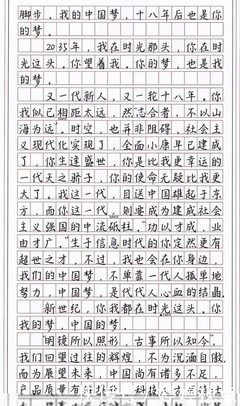 脚步，我的中国梦，十八年后也是你
的梦。
2035年，我在时光那头，你在时
光这头。你望着我，你的梦，也是我
的梦。
又一代新人，又一轮十八年。你
我似已相距太远，然“志合者，不以山
海为远”。时空，也并非阻碍。社会主
义现代化实现了，全面小康早已建成
了，你生逢盛世，你是比我更幸运的
一代天之骄子，你的使命无疑比我更
大了。我这一代，目送中国雄起于东
方，而你这一代，则要成为建成社会
主义强国的中流砥柱。“功以才成，业
由才广。”生于信息时代的你定然更有
超世之才，不过，我也会在你身边，
我们的中国梦，不单靠一代人孤单地
努力，中国梦，是代代人心血的结晶
新世纪，你我都在时光这头。你
我的梦，中国的梦。
“明镜所以照形，古事所以知今”，
我们回望过往的辉煌，不为沉湎自傲，
而为展望未来，中国尚有诸多不足，
产品质量有待提升，科技人才